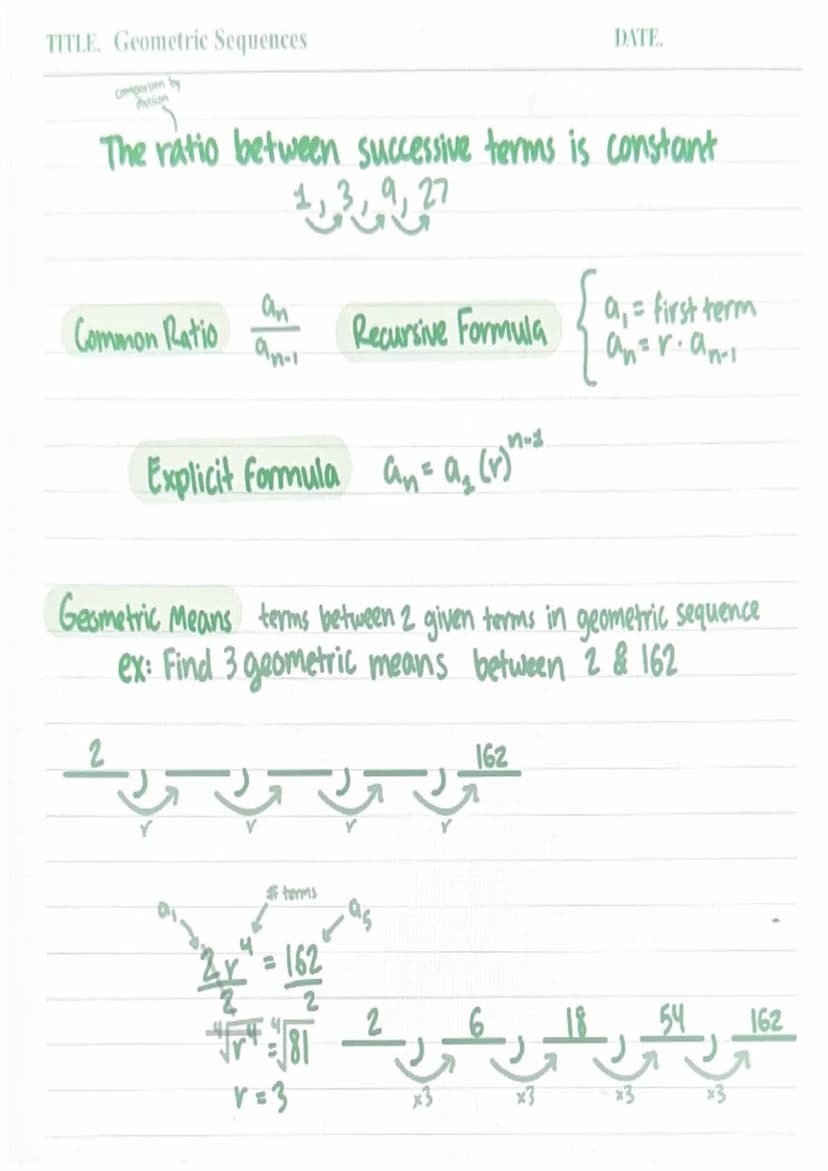 TITLE. Geometric Sequences DATE.
comparison by
division
The ratio between successive terms is constant
1, 3, 9, 27
Common Ratio aₙ/aₙ₋₁ Recursive Formula { a₁ = first term
aₙ = r · aₙ₋₁
Explicit Formula aₙ = a₁ (r)ⁿ⁻¹
Geometric Means terms between 2 given terms in geometric sequence
ex: Find 3 geometric means between 2 & 162
2, __, __, __, 162
r r r r
a₁ # terms a₅
2r⁴ = 162
2 2
⁴√r⁴ = ⁴√81
r = 3
2, 6, 18, 54, 162
x3 x3 x3 x3